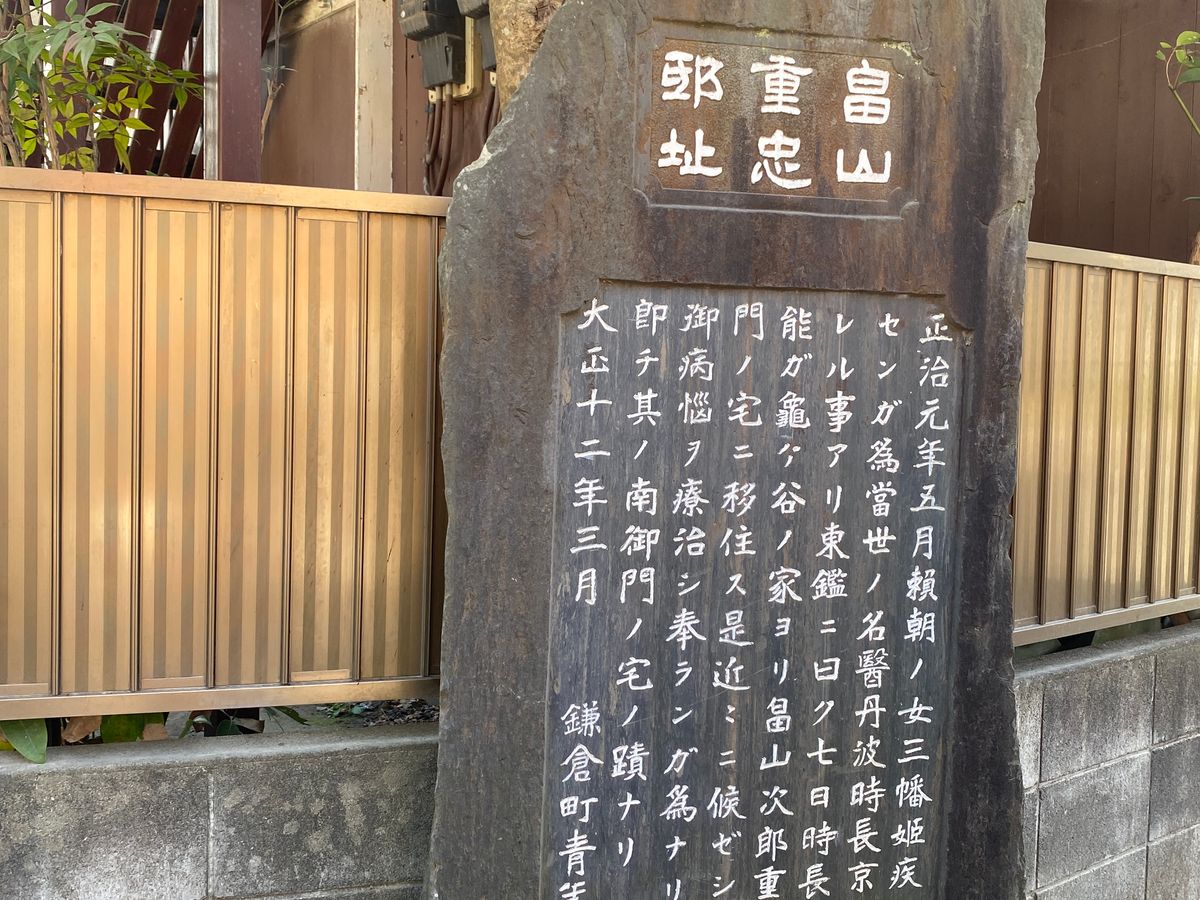 畠山
重忠
邸址
正治元年五月賴朝ノ女三幡姫疾
センガ為當世ノ名醫丹波時長京
レル事アリ東鑑ニ曰ク七日時長
能ガ龜ヶ谷ノ家ヨリ畠山次郎重
門ノ宅ニ移住ス是近ミニ候ゼシ
御病惱ヲ療治シ奉ランガ為ナリ
即チ其ノ南御門ノ宅ノ蹟ナリ
大正十二年三月 鎌倉町青年